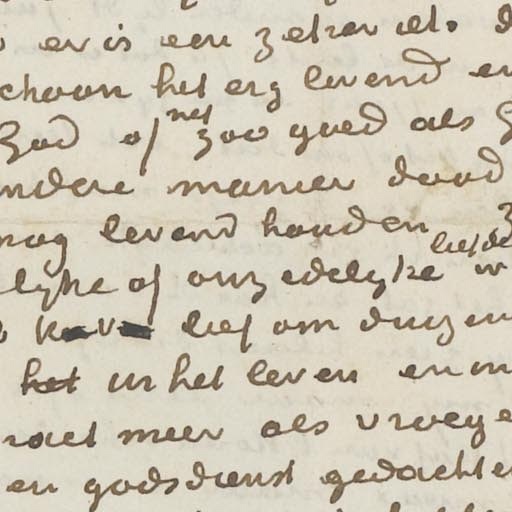 er is een zeker iets d
choon het erg levend en
God of net zoo goed als
ndere manier dood
nog levend houden z
lyke of onz edelyke liefde
lief om duizen
het in het leven en m
niet meer als vroeger
en godsdienst gedachte